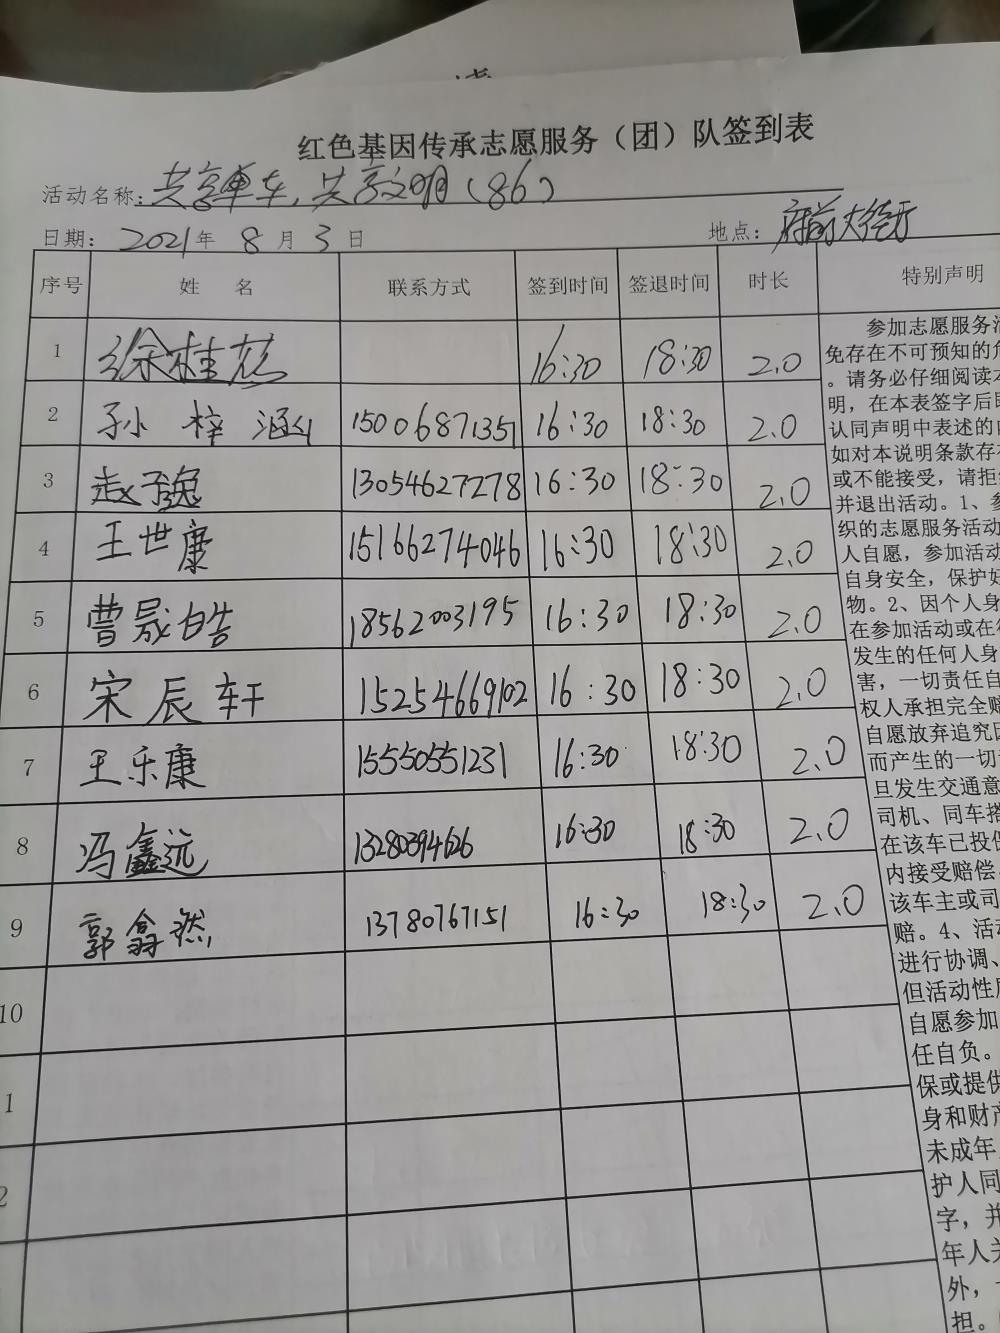 红色基因传承志愿服务（团）队签到表
活动名称：共享单车，共享文明（86）
日期：2021年 8月 3日 地点：府前大街
序号 姓 名 联系方式 签到时间 签退时间 时长 特别声明
1 徐桂慈 16:30 18:30 2.0
2 孙梓涵 15006871351 16:30 18:30 2.0
3 赵子逸 13054627278 16:30 18:30 2.0
4 王世康 15166274046 16:30 18:30 2.0
5 曹晟皓 18562003195 16:30 18:30 2.0
6 宋辰轩 15254669102 16:30 18:30 2.0
7 王乐康 15550551231 16:30 18:30 2.0
8 冯鑫远 13280394626 16:30 18:30 2.0
9 郭翕然 13780767151 16:30 18:30 2.0
10
1
2
参加志愿服务活
免存在不可预知的危
。请务必仔细阅读本
明，在本表签字后即
认同声明中表述的内
如对本说明条款存在
或不能接受，请拒绝
并退出活动。1、参
织的志愿服务活动
人自愿，参加活动
自身安全，保护好
物。2、因个人身
在参加活动或在往
发生的任何人身
害，一切责任自
权人承担完全赔
自愿放弃追究因
而产生的一切
旦发生交通意
司机、同车搭
在该车已投保
内接受赔偿，
该车主或司
赔。4、活动
进行协调、
但活动性质
自愿参加
任自负。
保或提供
身和财产
未成年
护人同
字，并
年人关
外，
担。